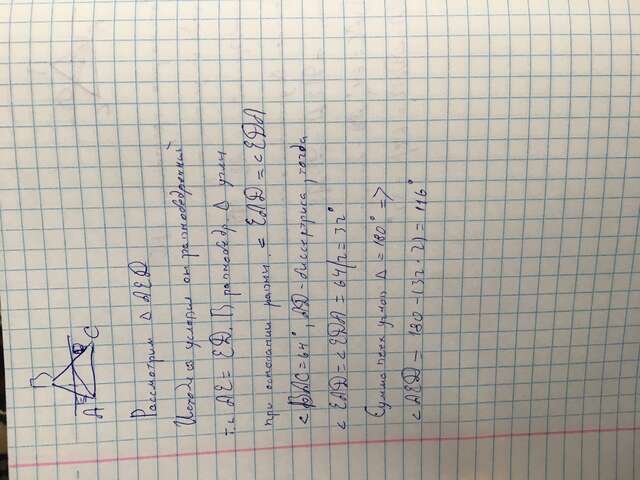 B
A
C
Рассмотрим △ AED
Исходя из условия он равнобедренный
т.к AE = ED. В равнобедр. △ углы
при основании равны. < EAD = < EDA
< BAC = 64°, AD - биссектриса, тогда
< EAD = < EDA = 64/2 = 32°
Сумма всех углов △ = 180° =>
< AED = 180 - (32 · 2) = 116°